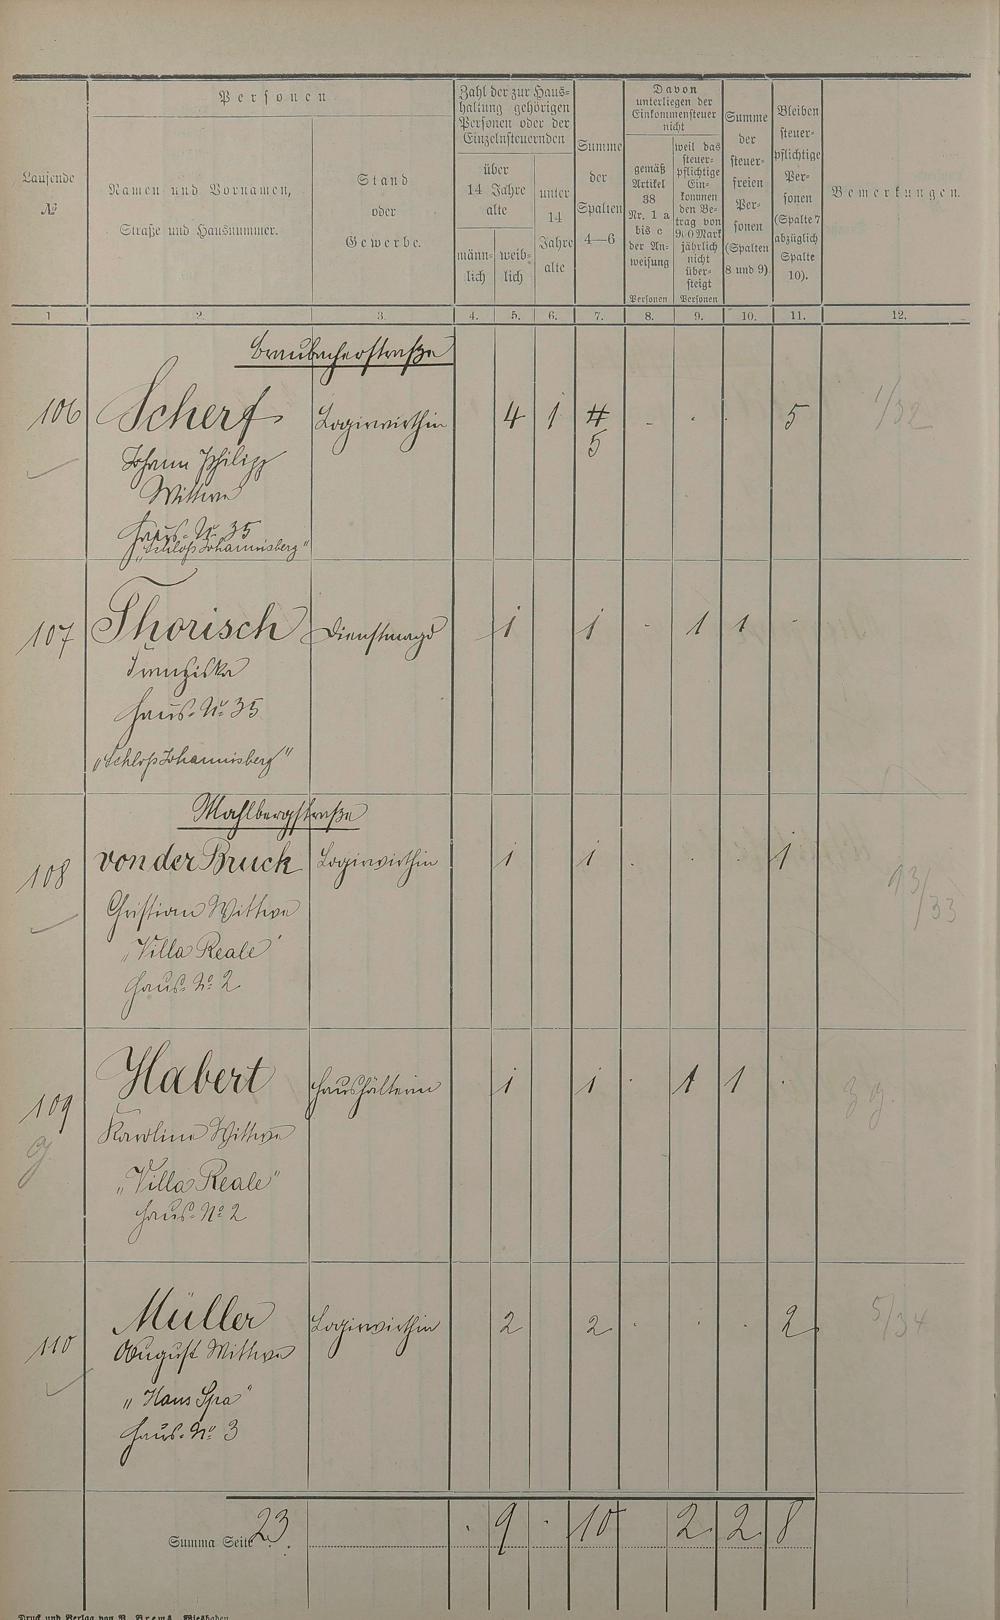 Personen
Zahl der zur Haus-
haltung gehörigen
Personen oder der
Einzelnsteuernden
Davon
unterliegen der
Einkommensteuer
nicht
Laufende
№
Namen und Vornamen,
Straße und Hausnummer.
Stand
oder
Gewerbe.
über
14 Jahre
alte
männ-
lich
weib-
lich
unter
14
Jahre
alte
Summe
der
Spalten
4—6
gemäß
Artikel
38
Nr. 1 a
bis c
der An-
weisung
Personen
weil das
steuer-
pflichtige
Ein-
kommen
den Be-
trag von
900 Mark
jährlich
nicht
über-
steigt
Personen
Summe
der
steuer-
freien
Per-
sonen
(Spalten
8 und 9)
Bleiben
steuer-
pflichtige
Per-
sonen
(Spalte 7
abzüglich
Spalte
10).
Bemerkungen.
1 2. 3. 4. 5. 6. 7. 8. 9. 10. 11. 12.
Braubacherstraße
106 Scherf Logirwirthin 4 1 5 - . . 5 1/32
Johann Philipp
Wittwe
Haus-No 35
"Schloß Johannisberg"
107 Thorisch Dienstmagd 1 1 - 1 1 -
Franziska
Haus-No 35
"Schloß Johannisberg"
Mahlbergstraße
108 von der Bruck Logirwirthin 1 1 . . . 1 13/33
Christian Wittwe
"Villa Reale"
Haus-No 2
109 Habert Haushälterin 1 1 . 1 1 .
Karoline Wittwe
"Villa Reale"
Haus-No 2
110 Müller Logirwirthin 2 2 . . . 2 5/34
August Wittwe
"Haus Spa"
Haus-No 3
Summa Seite 23. . 9 . 10 2 2 8
Druck und Verlag von R. Brems, Wiesbaden